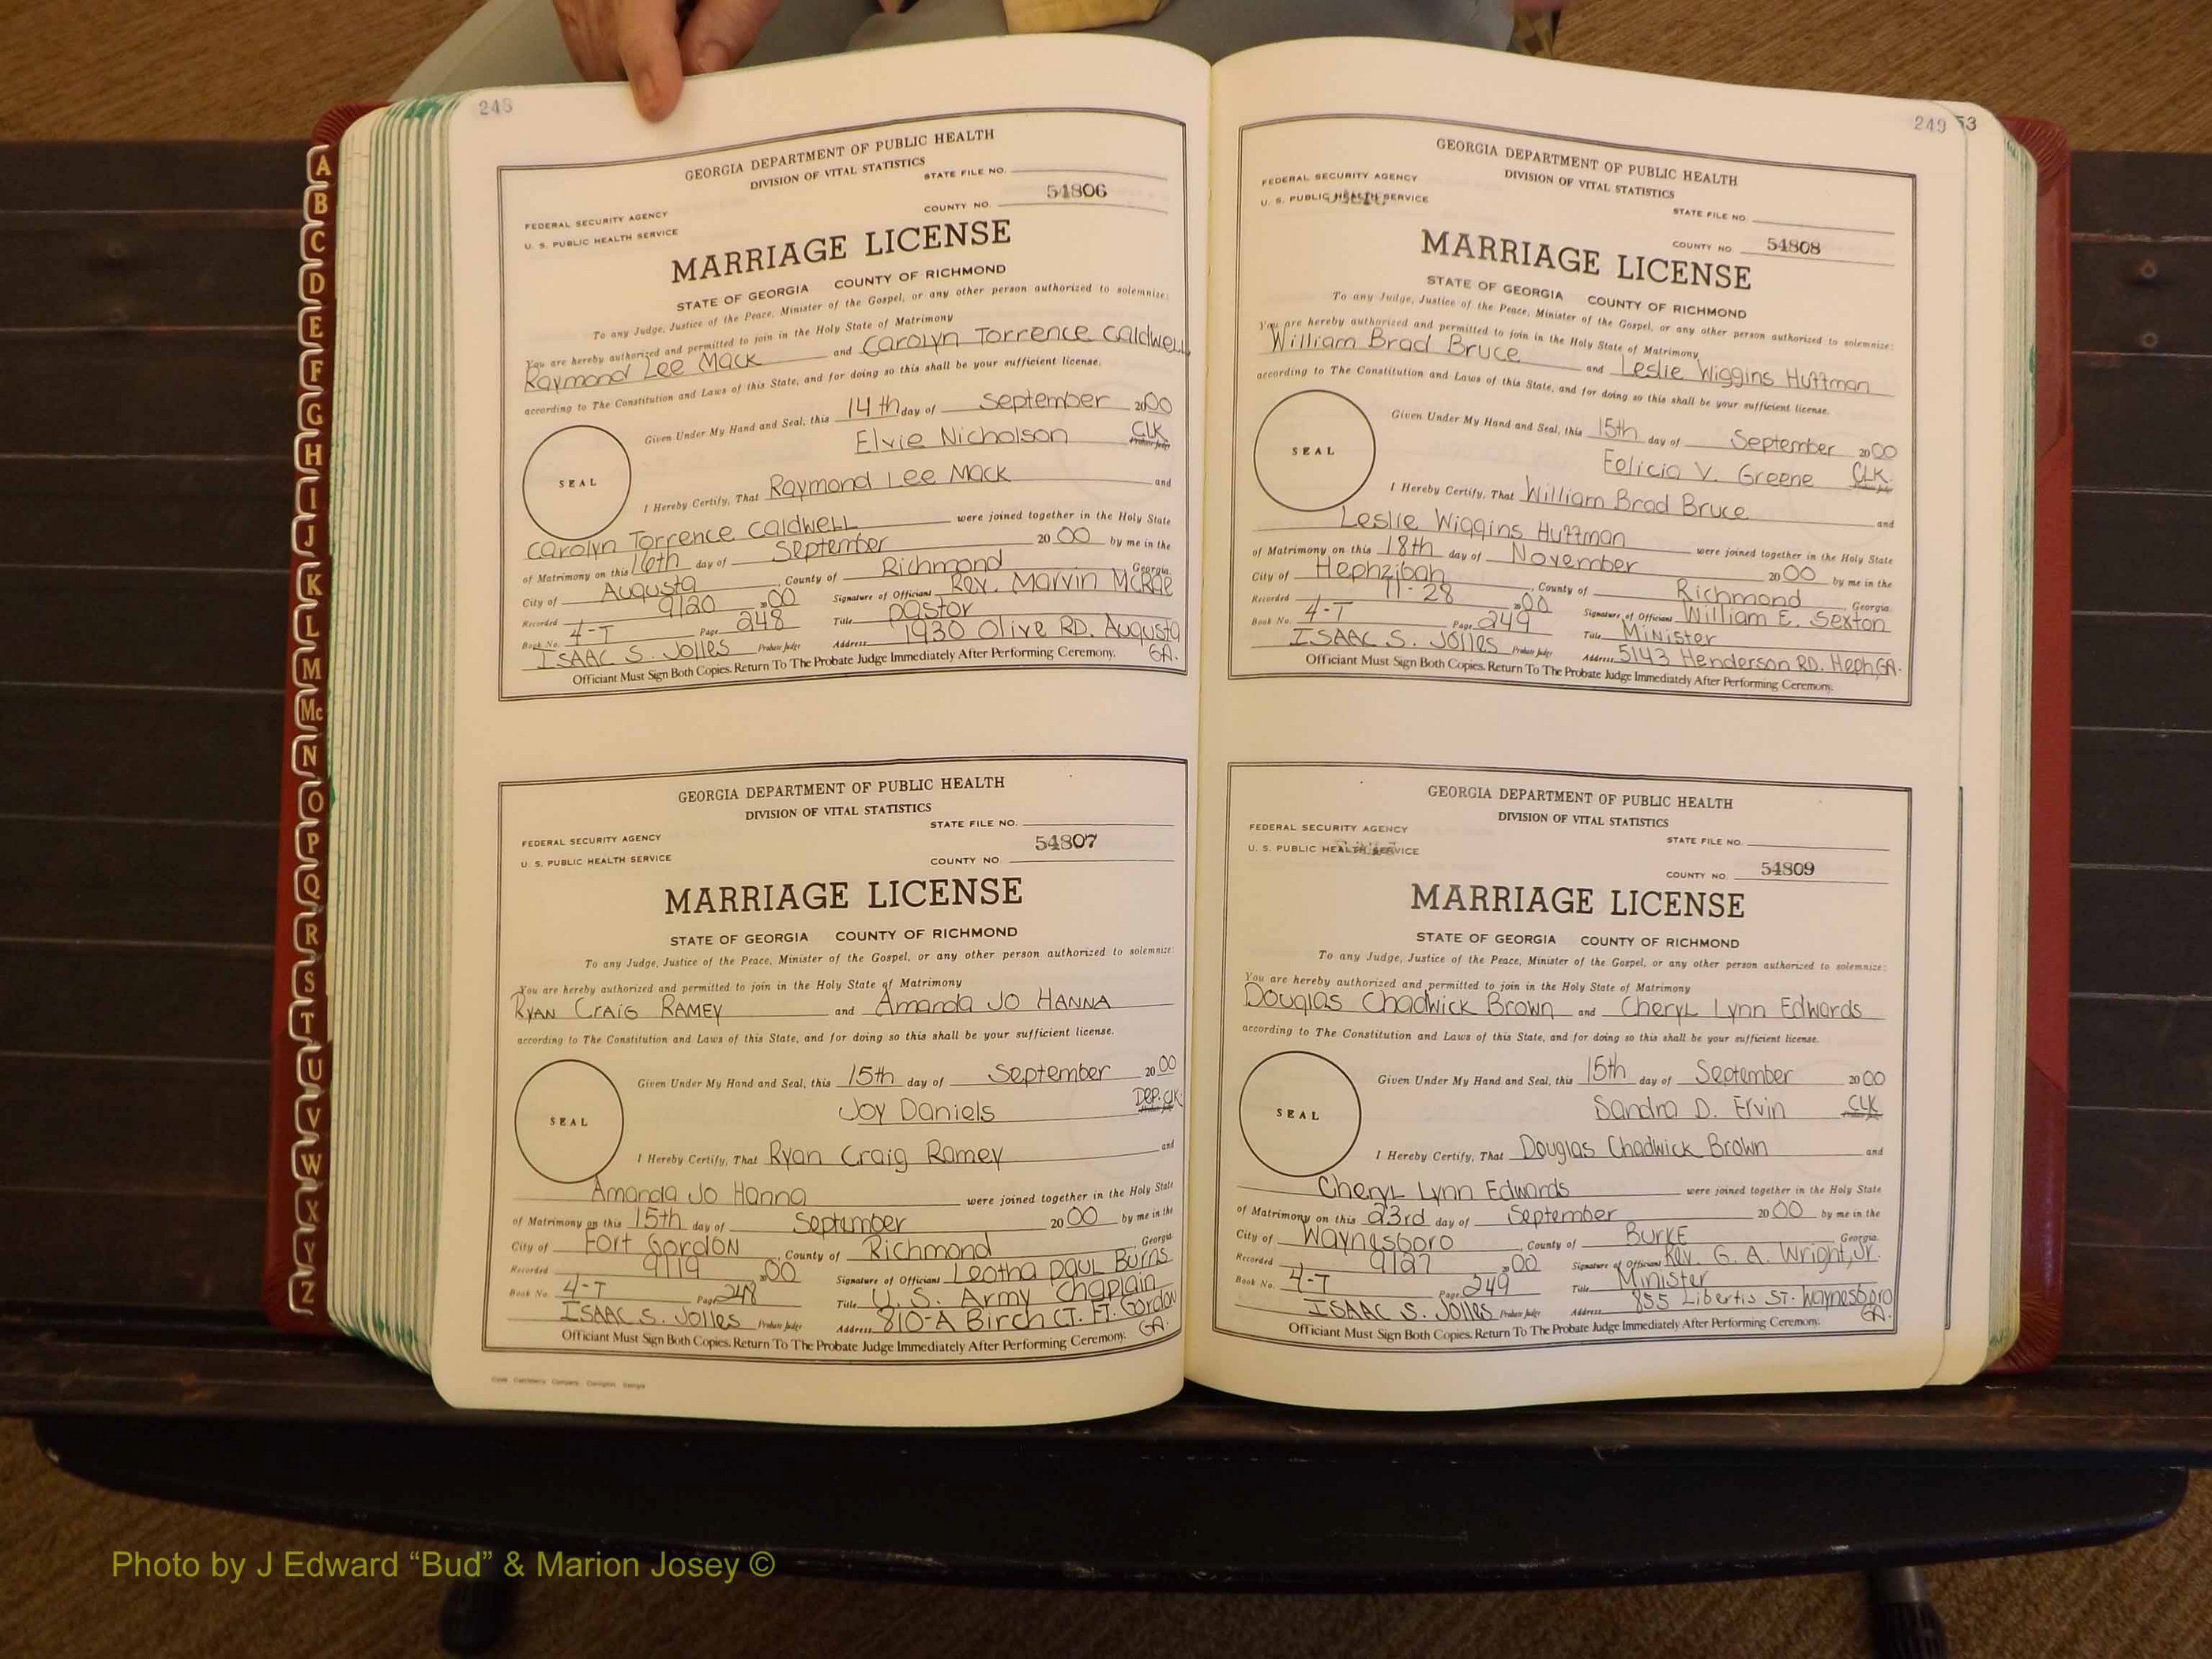 A
B
C
D
E
F
G
H
I
J
K
L
M
Mc
N
O
P
Q
R
S
T
U
V
W
X
Y
Z
248
GEORGIA DEPARTMENT OF PUBLIC HEALTH
DIVISION OF VITAL STATISTICS
STATE FILE NO.
FEDERAL SECURITY AGENCY
U. S. PUBLIC HEALTH SERVICE
COUNTY NO. 54806
MARRIAGE LICENSE
STATE OF GEORGIA COUNTY OF RICHMOND
To any Judge, Justice of the Peace, Minister of the Gospel, or any other person authorized to solemnize:
You are hereby authorized and permitted to join in the Holy State of Matrimony
Raymond Lee Mack and Carolyn Torrence Caldwell
according to The Constitution and Laws of this State, and for doing so this shall be your sufficient license.
Given Under My Hand and Seal, this 14th day of September 2000
Elvie Nicholson CLK
Probate Judge
SEAL
I Hereby Certify, That Raymond Lee Mack and
Carolyn Torrence Caldwell were joined together in the Holy State
of Matrimony on this 16th day of September 20 00 by me in the
City of Augusta, County of Richmond Georgia.
Recorded 9/20 2000 Signature of Officiant Rev. Marvin McRae
Book No. 4-T Page 248 Title Pastor
ISAAC S. Jolles Probate Judge Address 1930 Olive RD. Augusta GA.
Officiant Must Sign Both Copies. Return To The Probate Judge Immediately After Performing Ceremony.
GEORGIA DEPARTMENT OF PUBLIC HEALTH
DIVISION OF VITAL STATISTICS
STATE FILE NO.
FEDERAL SECURITY AGENCY
U. S. PUBLIC HEALTH SERVICE
COUNTY NO 54807
MARRIAGE LICENSE
STATE OF GEORGIA COUNTY OF RICHMOND
To any Judge, Justice of the Peace, Minister of the Gospel, or any other person authorized to solemnize:
You are hereby authorized and permitted to join in the Holy State of Matrimony
RYAN CRAIG RAMEY and Amanda JO HANNA
according to The Constitution and Laws of this State, and for doing so this shall be your sufficient license.
Given Under My Hand and Seal, this 15th day of September 2000
Joy Daniels DEP. CLK
Probate Judge
SEAL
I Hereby Certify, That Ryan Craig Ramey and
Amanda Jo Hanna were joined together in the Holy State
of Matrimony on this 15th day of September 20 00 by me in the
City of Fort Gordon, County of Richmond Georgia.
Recorded 9/19 2000 Signature of Officiant Leotha Paul Burns
Book No. 4-T Page 248 Title U. S. Army Chaplain
ISAAC S. Jolles Probate Judge Address 810-A Birch CT. FT. Gordon GA.
Officiant Must Sign Both Copies. Return To The Probate Judge Immediately After Performing Ceremony.
249 53
GEORGIA DEPARTMENT OF PUBLIC HEALTH
DIVISION OF VITAL STATISTICS
FEDERAL SECURITY AGENCY
U. S. PUBLIC HEALTH SERVICE
STATE FILE NO.
COUNTY NO 54808
MARRIAGE LICENSE
STATE OF GEORGIA COUNTY OF RICHMOND
To any Judge, Justice of the Peace, Minister of the Gospel, or any other person authorized to solemnize:
You are hereby authorized and permitted to join in the Holy State of Matrimony
William Brad Bruce and Leslie Wiggins Huffman
according to The Constitution and Laws of this State, and for doing so this shall be your sufficient license.
Given Under My Hand and Seal, this 15th day of September 2000
Felicia V. Greene CLK.
Probate Judge
SEAL
I Hereby Certify, That William Brad Bruce and
Leslie Wiggins Huffman were joined together in the Holy State
of Matrimony on this 18th day of November 20 00 by me in the
City of Hephzibah, County of Richmond Georgia.
Recorded 11-28 2000 Signature of Officiant William E. Sexton
Book No. 4-T Page 249 Title Minister
ISAAC S. Jolles Probate Judge Address 5143 Henderson RD. Heph, GA.
Officiant Must Sign Both Copies. Return To The Probate Judge Immediately After Performing Ceremony.
GEORGIA DEPARTMENT OF PUBLIC HEALTH
DIVISION OF VITAL STATISTICS
FEDERAL SECURITY AGENCY
U. S. PUBLIC HEALTH SERVICE
STATE FILE NO.
COUNTY NO. 54809
MARRIAGE LICENSE
STATE OF GEORGIA COUNTY OF RICHMOND
To any Judge, Justice of the Peace, Minister of the Gospel, or any other person authorized to solemnize:
You are hereby authorized and permitted to join in the Holy State of Matrimony
Douglas Chadwick Brown and Cheryl Lynn Edwards
according to The Constitution and Laws of this State, and for doing so this shall be your sufficient license.
Given Under My Hand and Seal, this 15th day of September 2000
Sandra D. Ervin CLK
Probate Judge
SEAL
I Hereby Certify, That Douglas Chadwick Brown and
Cheryl Lynn Edwards were joined together in the Holy State
of Matrimony on this 23rd day of September 20 00 by me in the
City of Waynesboro, County of BURKE Georgia.
Recorded 9/27 2000 Signature of Officiant Rev. G. A. Wright, Jr.
Book No. 4-T Page 249 Title Minister
ISAAC S. Jolles Probate Judge Address 855 Libertis ST. Waynesboro GA.
Officiant Must Sign Both Copies. Return To The Probate Judge Immediately After Performing Ceremony.
Photo by J Edward “Bud” & Marion Josey ©